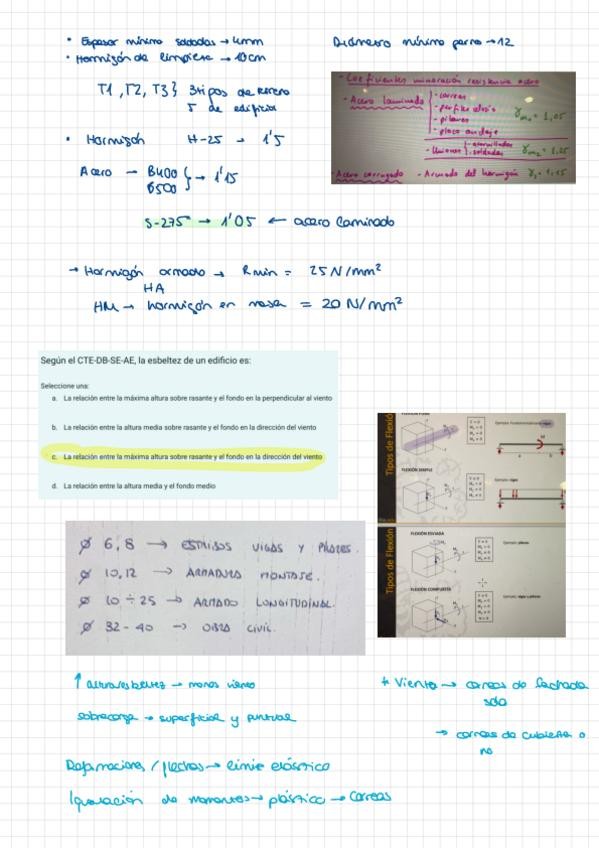 • Espesor mínimo soldadas → 4mm
Diámetro mínimo perno → 12
• Hormigón de limpieza → 10cm
T1, T2, T3 } 3 tipos de
5 de edificio
- Coeficientes minoración resistencia acero
- Acero laminado
- correas
- pilares
- placa anclaje
γm₀ = 1,05
- Uniones
- atornilladas
- soldadas
γm₂ = 1,25
- Acero corrugado - Armado del hormigón γs = 1,15
• Hormigón H-25 → 1'5
Acero → B400
B500
} → 1'15
S-275 → 1'05 ← acero laminado
→ Hormigón armado → Rmin = 25 N/mm²
HA
HM → hormigón en masa = 20 N/mm²
Según el CTE-DB-SE-AE, la esbeltez de un edificio es:
Seleccione una:
a. La relación entre la máxima altura sobre rasante y el fondo en la perpendicular al viento
b. La relación entre la altura media sobre rasante y el fondo en la dirección del viento
c. La relación entre la máxima altura sobre rasante y el fondo en la dirección del viento
d. La relación entre la altura media y el fondo medio
Tipos de Flexión
FLEXIÓN PURA
FLEXIÓN SIMPLE
Tipos de Flexión
FLEXIÓN ESVIADA
FLEXIÓN COMPUESTA
ø 6,8 → ESTRIBOS VIGAS Y PILARES.
ø 10,12 → ARMADURA MONTAJE.
ø 10 ÷ 25 → ARMADO LONGITUDINAL.
ø 32 - 40 → OBRA CIVIL.
↑ altura esbeltez → menos viento
sobrecarga → superficial y puntual
* Viento → correas de fachada
solo
→ correas de cubierta o
no
Deformaciones / flechas → límite elástico
Igualación de momentos → plástico → Correas